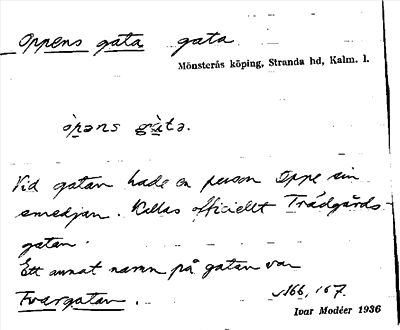 Oppens gata gata
Mönsterås köping, Stranda hd, Kalm. l.
òpəns gàtə.
Vid gatan hade en person Oppe sin
smedjan. Kallas officiellt Trädgårds-
gatan.
Ett annat namn på gatan var
Tvärgatan.
166, 167.
Ivar Modéer 1936